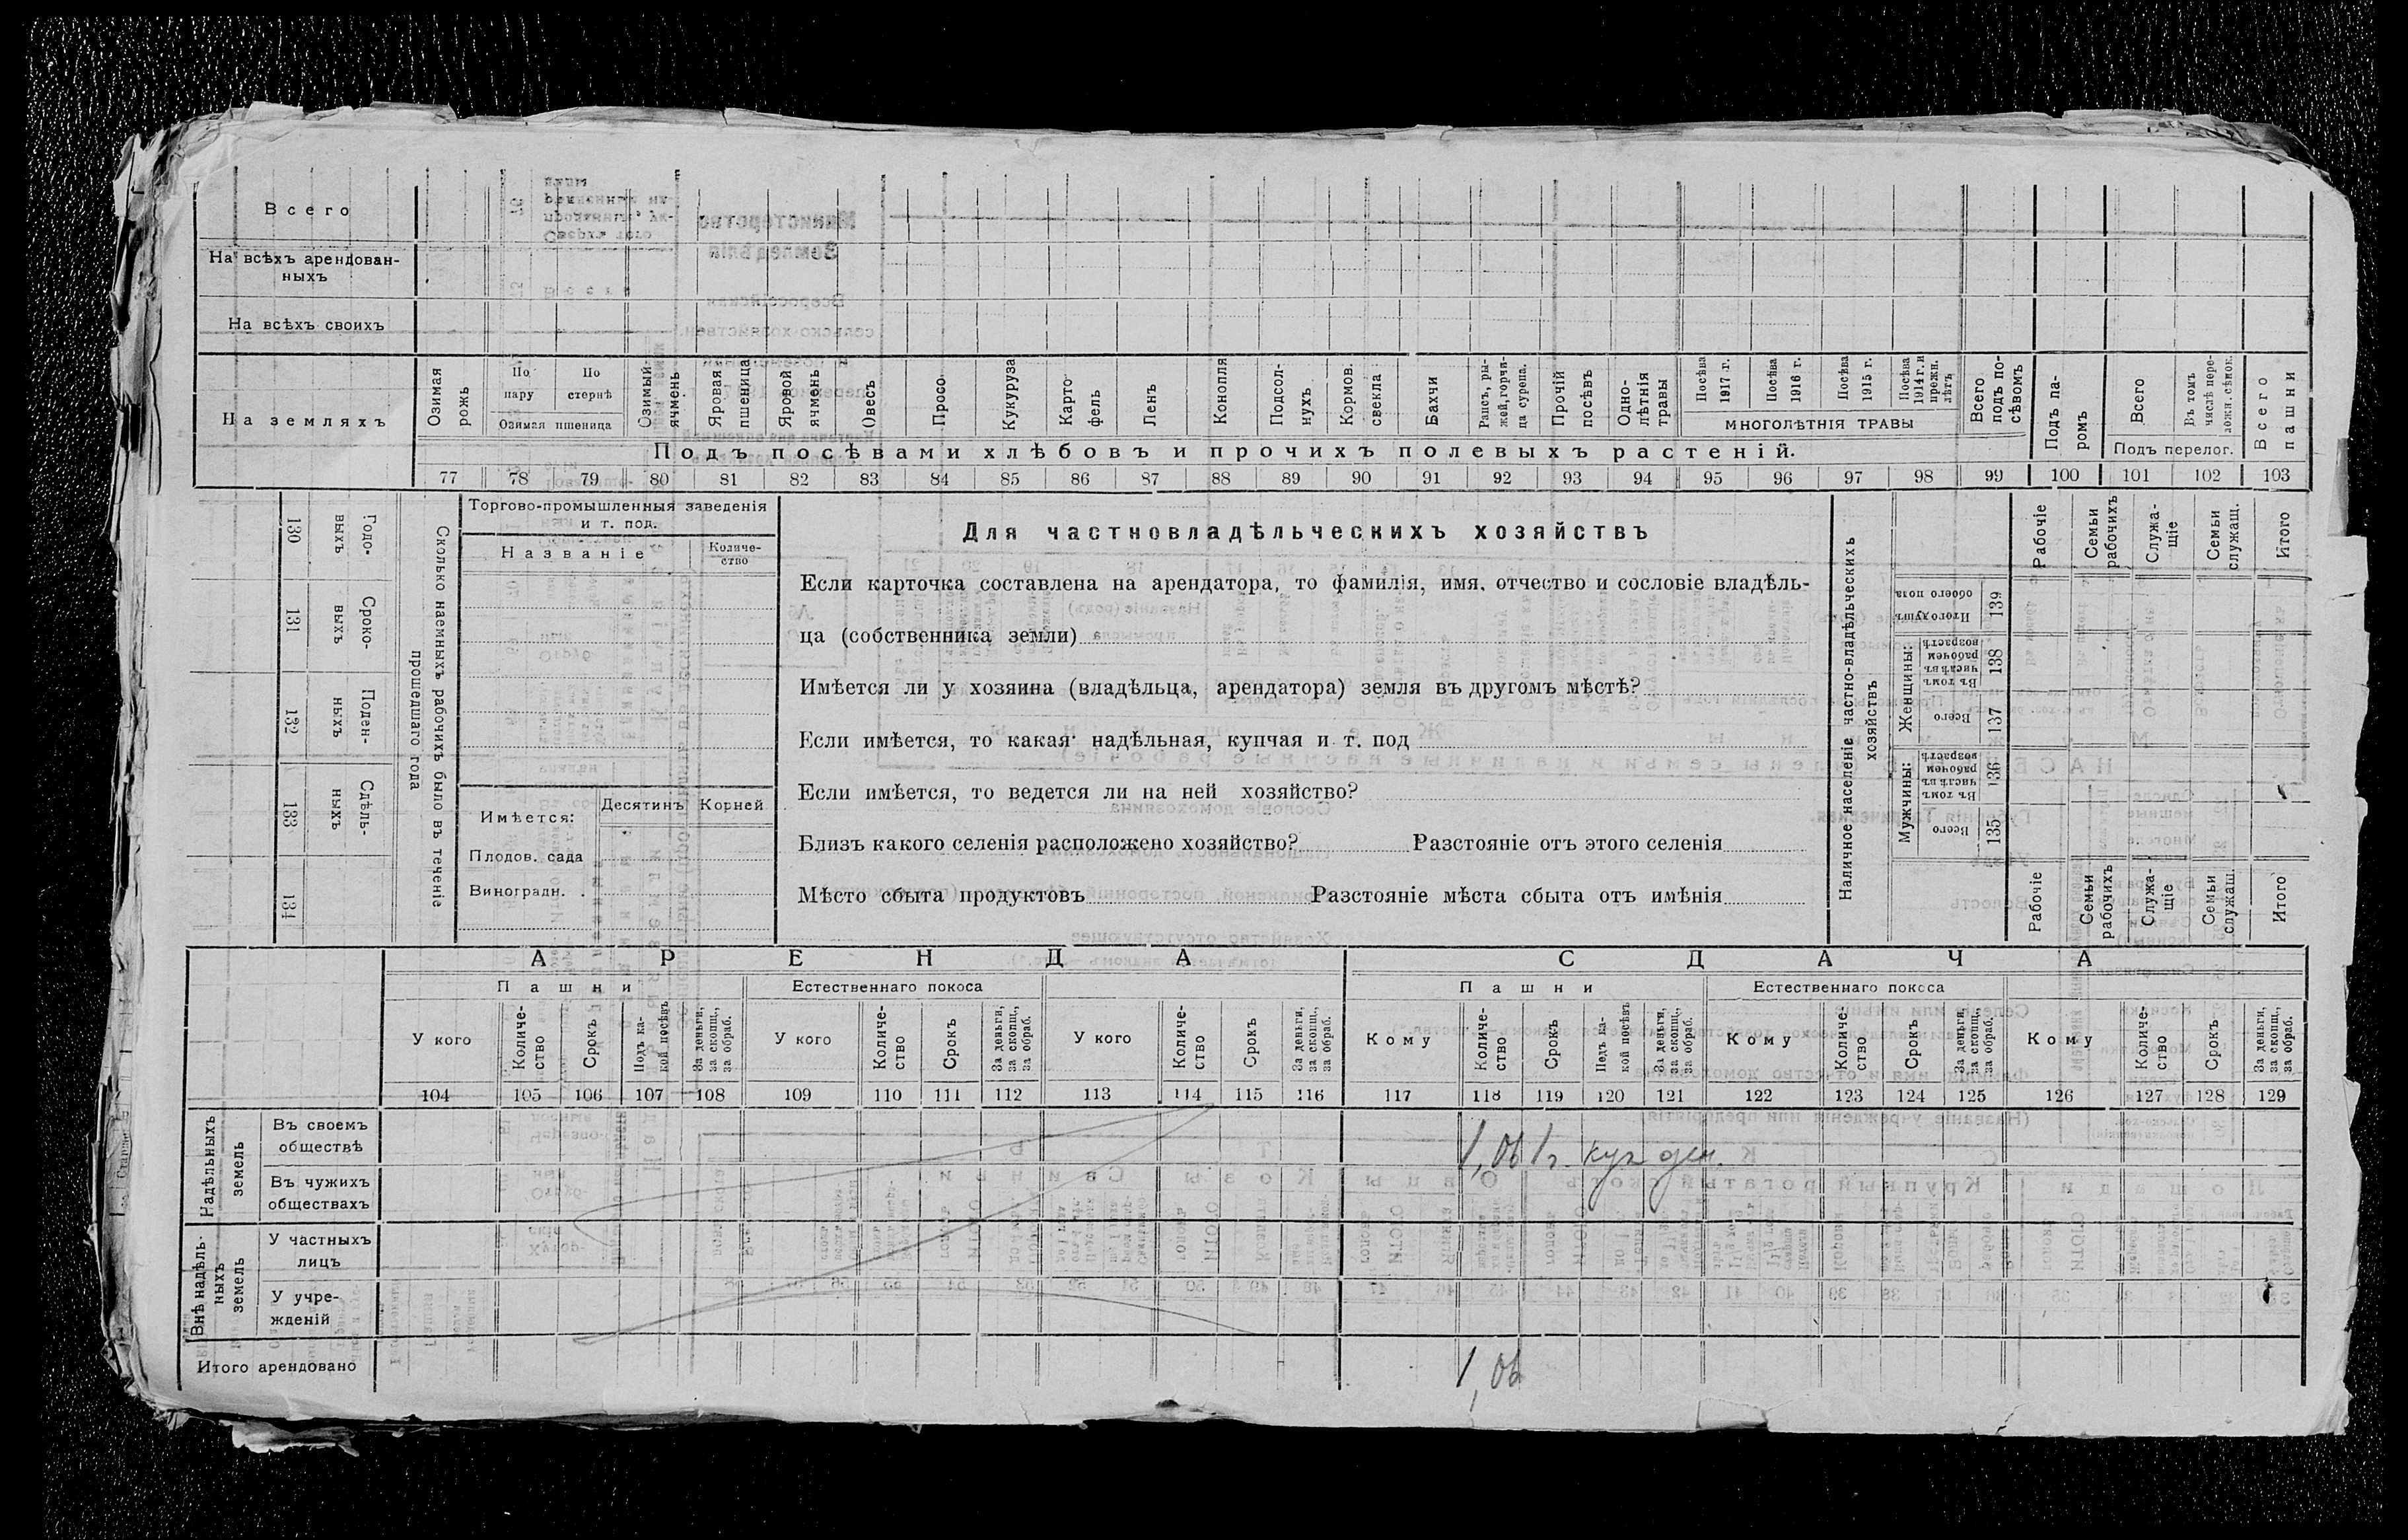 Всего
На всѣхъ арендован-
ныхъ
На всѣхъ своихъ
На земляхъ
Озимая рожь
По пару
По стернѣ
Озимая пшеница
Озимый ячмень
Яровая пшеница
Яровой ячмень
Овесъ
Просо
Кукуруза
Карто
фель
Ленъ
Конопля
Подсол-
нухъ
Кормов. свекла
Бахчи
Рапсъ, ры-
жей, горча-
ца сурепа.
Прочій посѣвъ
Одно-
лѣтнія травы
Посѣва 1917 г.
Посѣва 1916 г.
Посѣва 1915 г.
Посѣва 1914 г. и прежн. лѣтъ
МНОГОЛѢТНІЯ ТРАВЫ
Всего подъ по-
сѣвомъ
Подъ па-
ромъ
Всего
Въ томъ числѣ пере-
ложн. сѣнок.
Подъ перелог.
Всего пашни
Подъ посѣвами хлѣбовъ и прочихъ полевыхъ растеній.
77 78 79 80 81 82 83 84 85 86 87 88 89 90 91 92 93 94 95 96 97 98 99 100 101 102 103
Сколько наемныхъ рабочихъ было въ теченіе
прошедшаго года
Годо-
выхъ
130
Сроко-
выхъ
131
Поден-
ныхъ
132
Сдѣль-
ныхъ
133
134
Торгово-промышленныя заведенія
и т. под.
Названіе
Количе-
ство
Имѣется:
Десятинъ
Корней
Плодов. сада
Виноградн.
Для частновладѣльческихъ хозяйствъ
Если карточка составлена на арендатора, то фамилія, имя, отчество и сословіе владѣль-
ца (собственника земли)
Имѣется ли у хозяина (владѣльца, арендатора) земля въ другомъ мѣстѣ?
Если имѣется, то какая· надѣльная, купчая и т. под
Если имѣется, то ведется ли на ней хозяйство?
Близъ какого селенія расположено хозяйство? Разстояніе отъ этого селенія
Мѣсто сбыта продуктовъ Разстояніе мѣста сбыта отъ имѣнія
Наличное населеніе частно-владѣльческихъ
хозяйствъ
Рабочіе
Семьи рабочихъ
Служа-
щіе
Семьи служащ.
Итого
Итого душъ обоего пола
139
Женщины:
Въ томъ числѣ въ рабочем возрастѣ
138
Всего
137
Мужчины:
Въ томъ числѣ въ рабочем возрастѣ
136
Всего
135
Рабочіе
Семьи рабочихъ
Служа-
щіе
Семьи служащ.
Итого
АРЕНДА
СДАЧА
Пашни
Естественнаго покоса
Пашни
Естественнаго покоса
У кого
Количе-
ство
Срокъ
Подъ ка-
кой посѣвъ
За деньги, за скопщ., за обраб.
У кого
Количе-
ство
Срокъ
За деньги, за скопщ., за обраб.
У кого
Количе-
ство
Срокъ
За деньги, за скопщ., за обраб.
Кому
Количе-
ство
Срокъ
Подъ ка-
кой посѣвъ
За деньги, за скопщ., за обраб.
Кому
Количе-
ство
Срокъ
За деньги, за скопщ., за обраб.
Кому
Количе-
ство
Срокъ
За деньги, за скопщ., за обраб.
104 105 106 107 108 109 110 111 112 113 114 115 116 117 118 119 120 121 122 123 124 125 126 127 128 129
Надѣльныхъ
земель
Въ своемъ
обществѣ
1,06 1 г. кук ден.
Въ чужихъ
обществахъ
Внѣ надѣль-
ныхъ
земель
У частныхъ
лицъ
У учре-
жденій
Итого арендовано
1,06